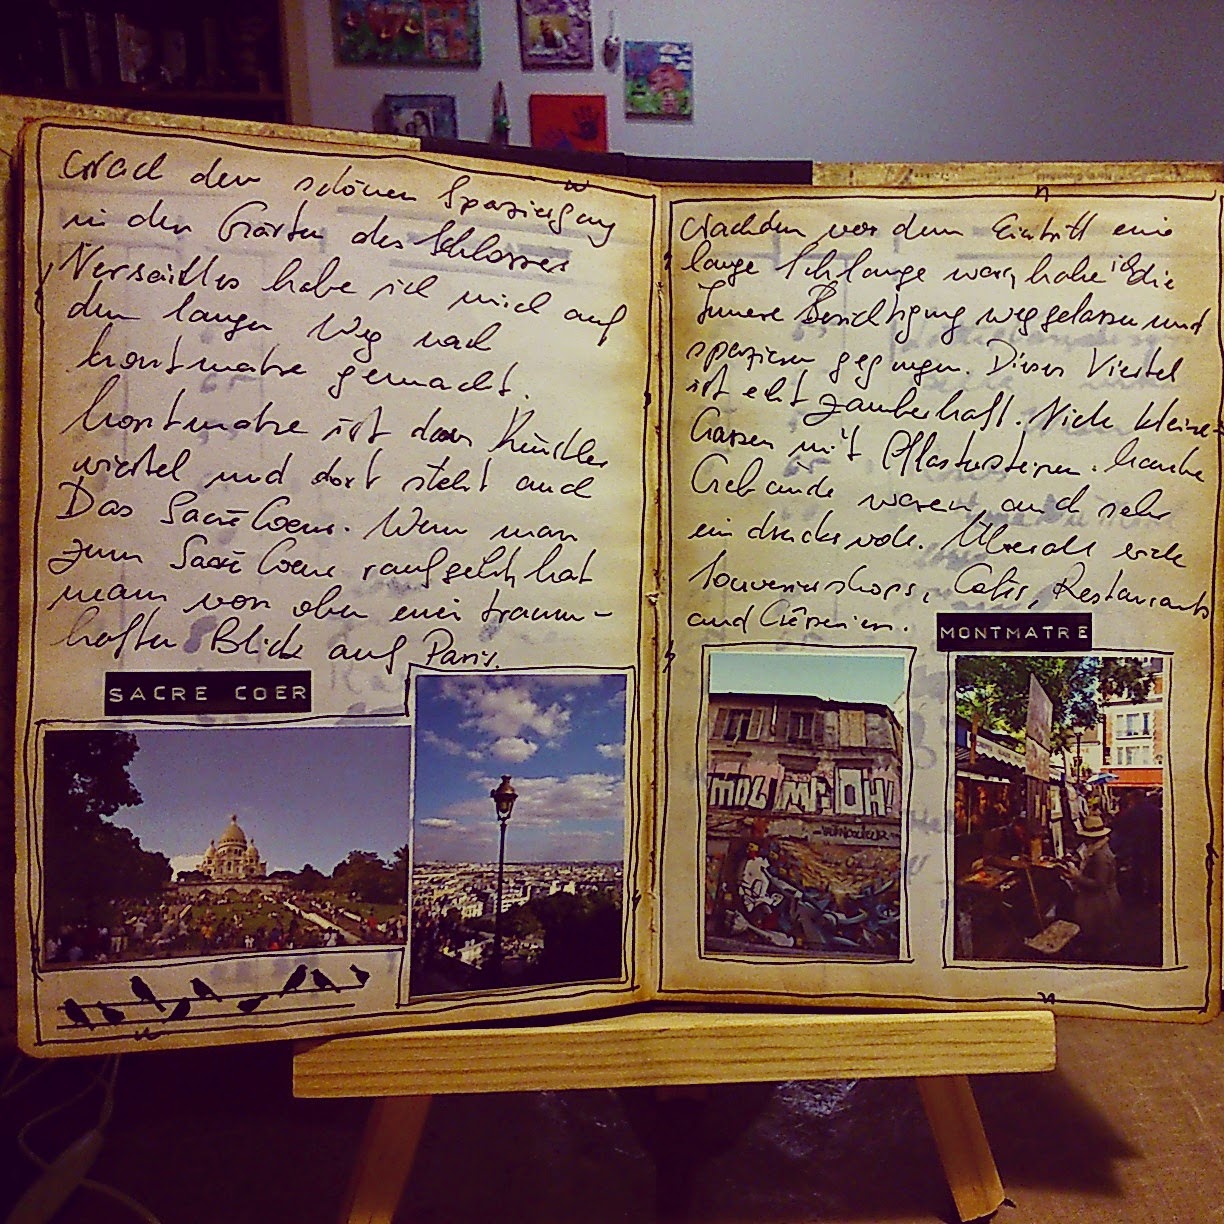 Nach dem schönen Spaziergang
in den Gärten des Schlosses
Versailles habe ich mich auf
den langen Weg nach
Montmatre gemacht.
Montmatre ist das Künstler
viertel und dort steht auch
Das Sacré Coeur. Wenn man
zum Sacré Coeur raufgeht, hat
man von oben einen traum-
haften Blick auf Paris.
SACRE COER
Nachdem vor dem Eintritt eine
lange Schlange war, habe ich die
Innere Besichtigung weggelassen und
spazieren gegangen. Dieses Viertel
ist echt zauberhaft. Viele kleine
Gassen mit Pflastersteinen. Manche
Gebäude waren auch sehr
eindrucksvoll. Überall viele
Souvenirshops, Cafés, Restaurants
und Galerien.
MONTMATRE